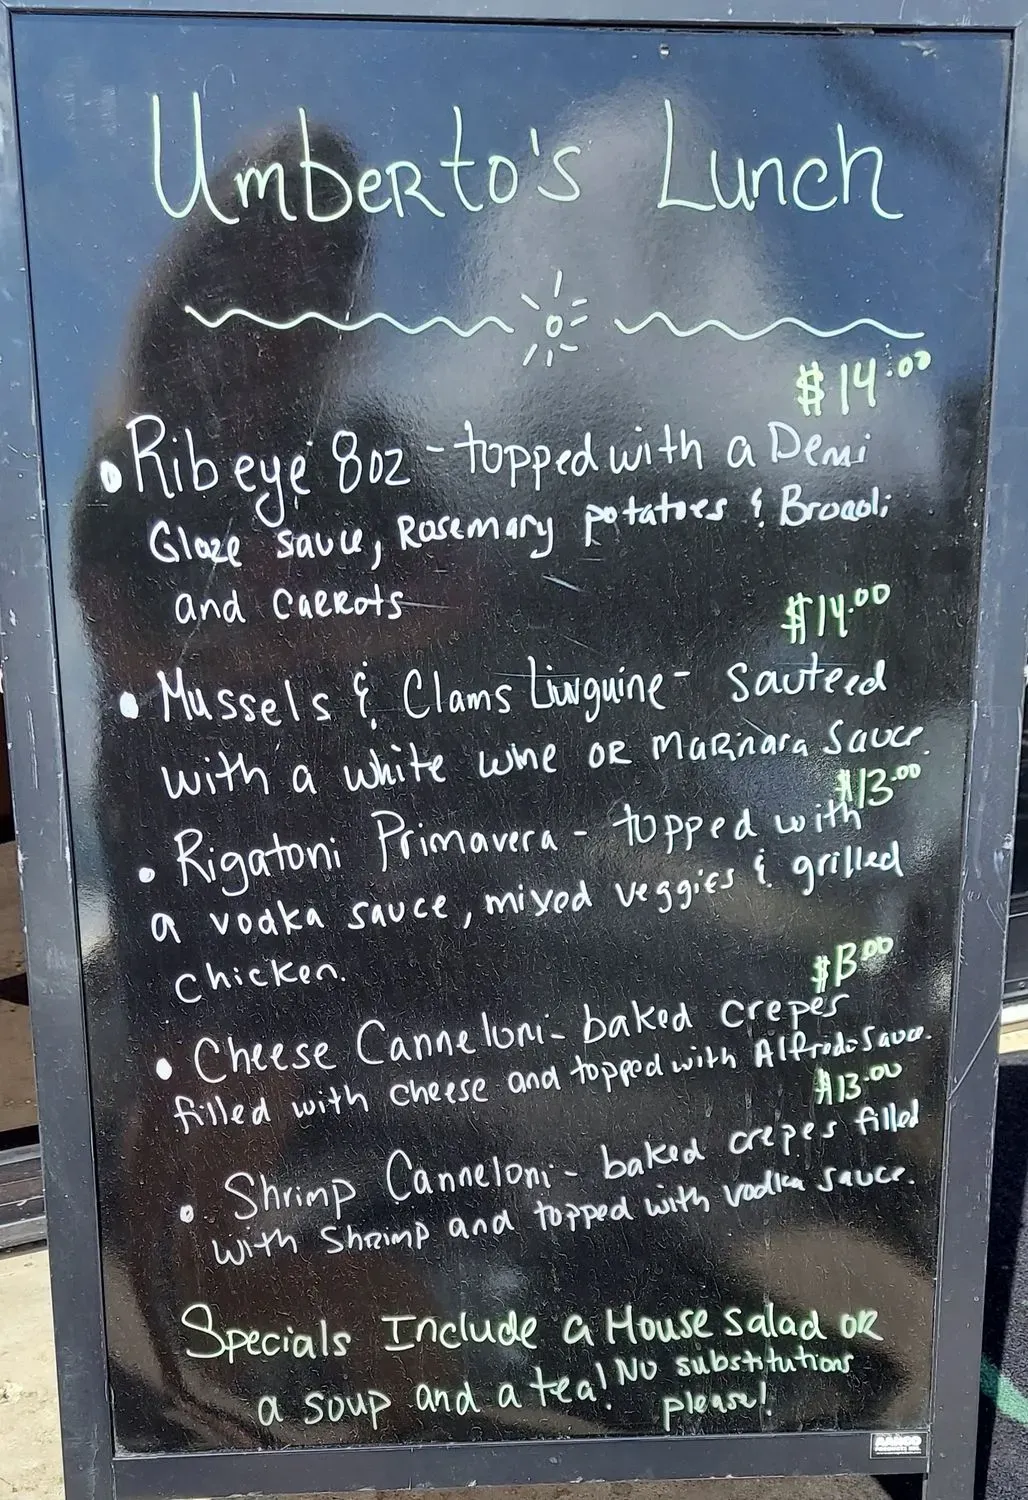 Umberto's Lunch
$14.00
• Ribeye 8oz - topped with a Demi
Glaze sauce, Rosemary potatoes & Broccoli
and Carrots
$14.00
• Mussels & Clams Linguine - Sauteed
with a white wine or Marinara Sauce.
$13.00
• Rigatoni Primavera - topped with
a vodka sauce, mixed veggies & grilled
chicken.
$13.00
• Cheese Canneloni - baked crepes
filled with cheese and topped with Alfredo Sauce.
$13.00
• Shrimp Canneloni - baked crepes filled
with Shrimp and topped with vodka sauce.
Specials Include a House salad or
a soup and a tea! No substitutions
please!